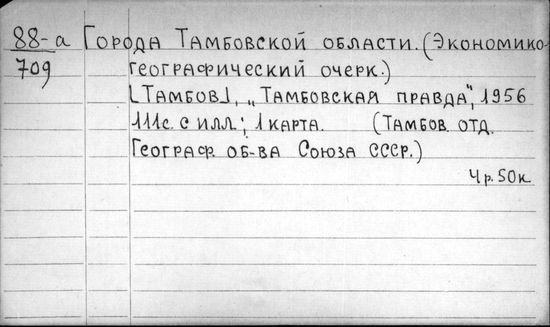 88-а Города Тамбовской области. (Экономико-
709 географический очерк.)
[Тамбов], „Тамбовская правда", 1956
111с. с илл.; 1 карта. (Тамбов. отд.
Географ. об-ва Союза ССР.)
4 р. 50 к